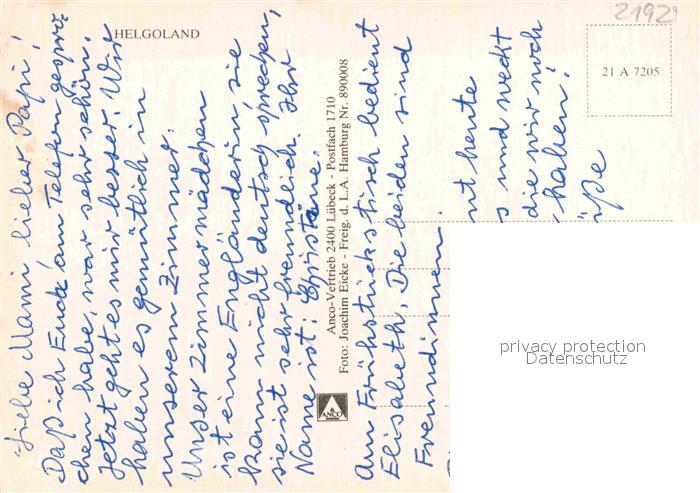 HELGOLAND
2192
21 A 7205
Liebe Mami lieber Papi!
Daß ich Euch am Telefon gespro
chen habe, war sehr schön.
Jetzt geht es mir besser. Wir
haben es gemütlich in
unserem Zimmer.
Unser Zimmermädchen
ist eine Engländerin, sie
kann nicht deutsch sprechen,
sie ist sehr freundlich. Ihr
Name ist: Christine.
Anco-Vertrieb 2400 Lübeck - Postfach 1710
Foto: Joachim Eicke - Freig. d. L.A. Hamburg Nr. 890008
ANCO
Am Frühstückstisch bedient
Elisabeth. Die beiden sind
Freundinnen.
nt heute
s und weckt
die wir noch
haben!
üße
privacy protection
Datenschutz